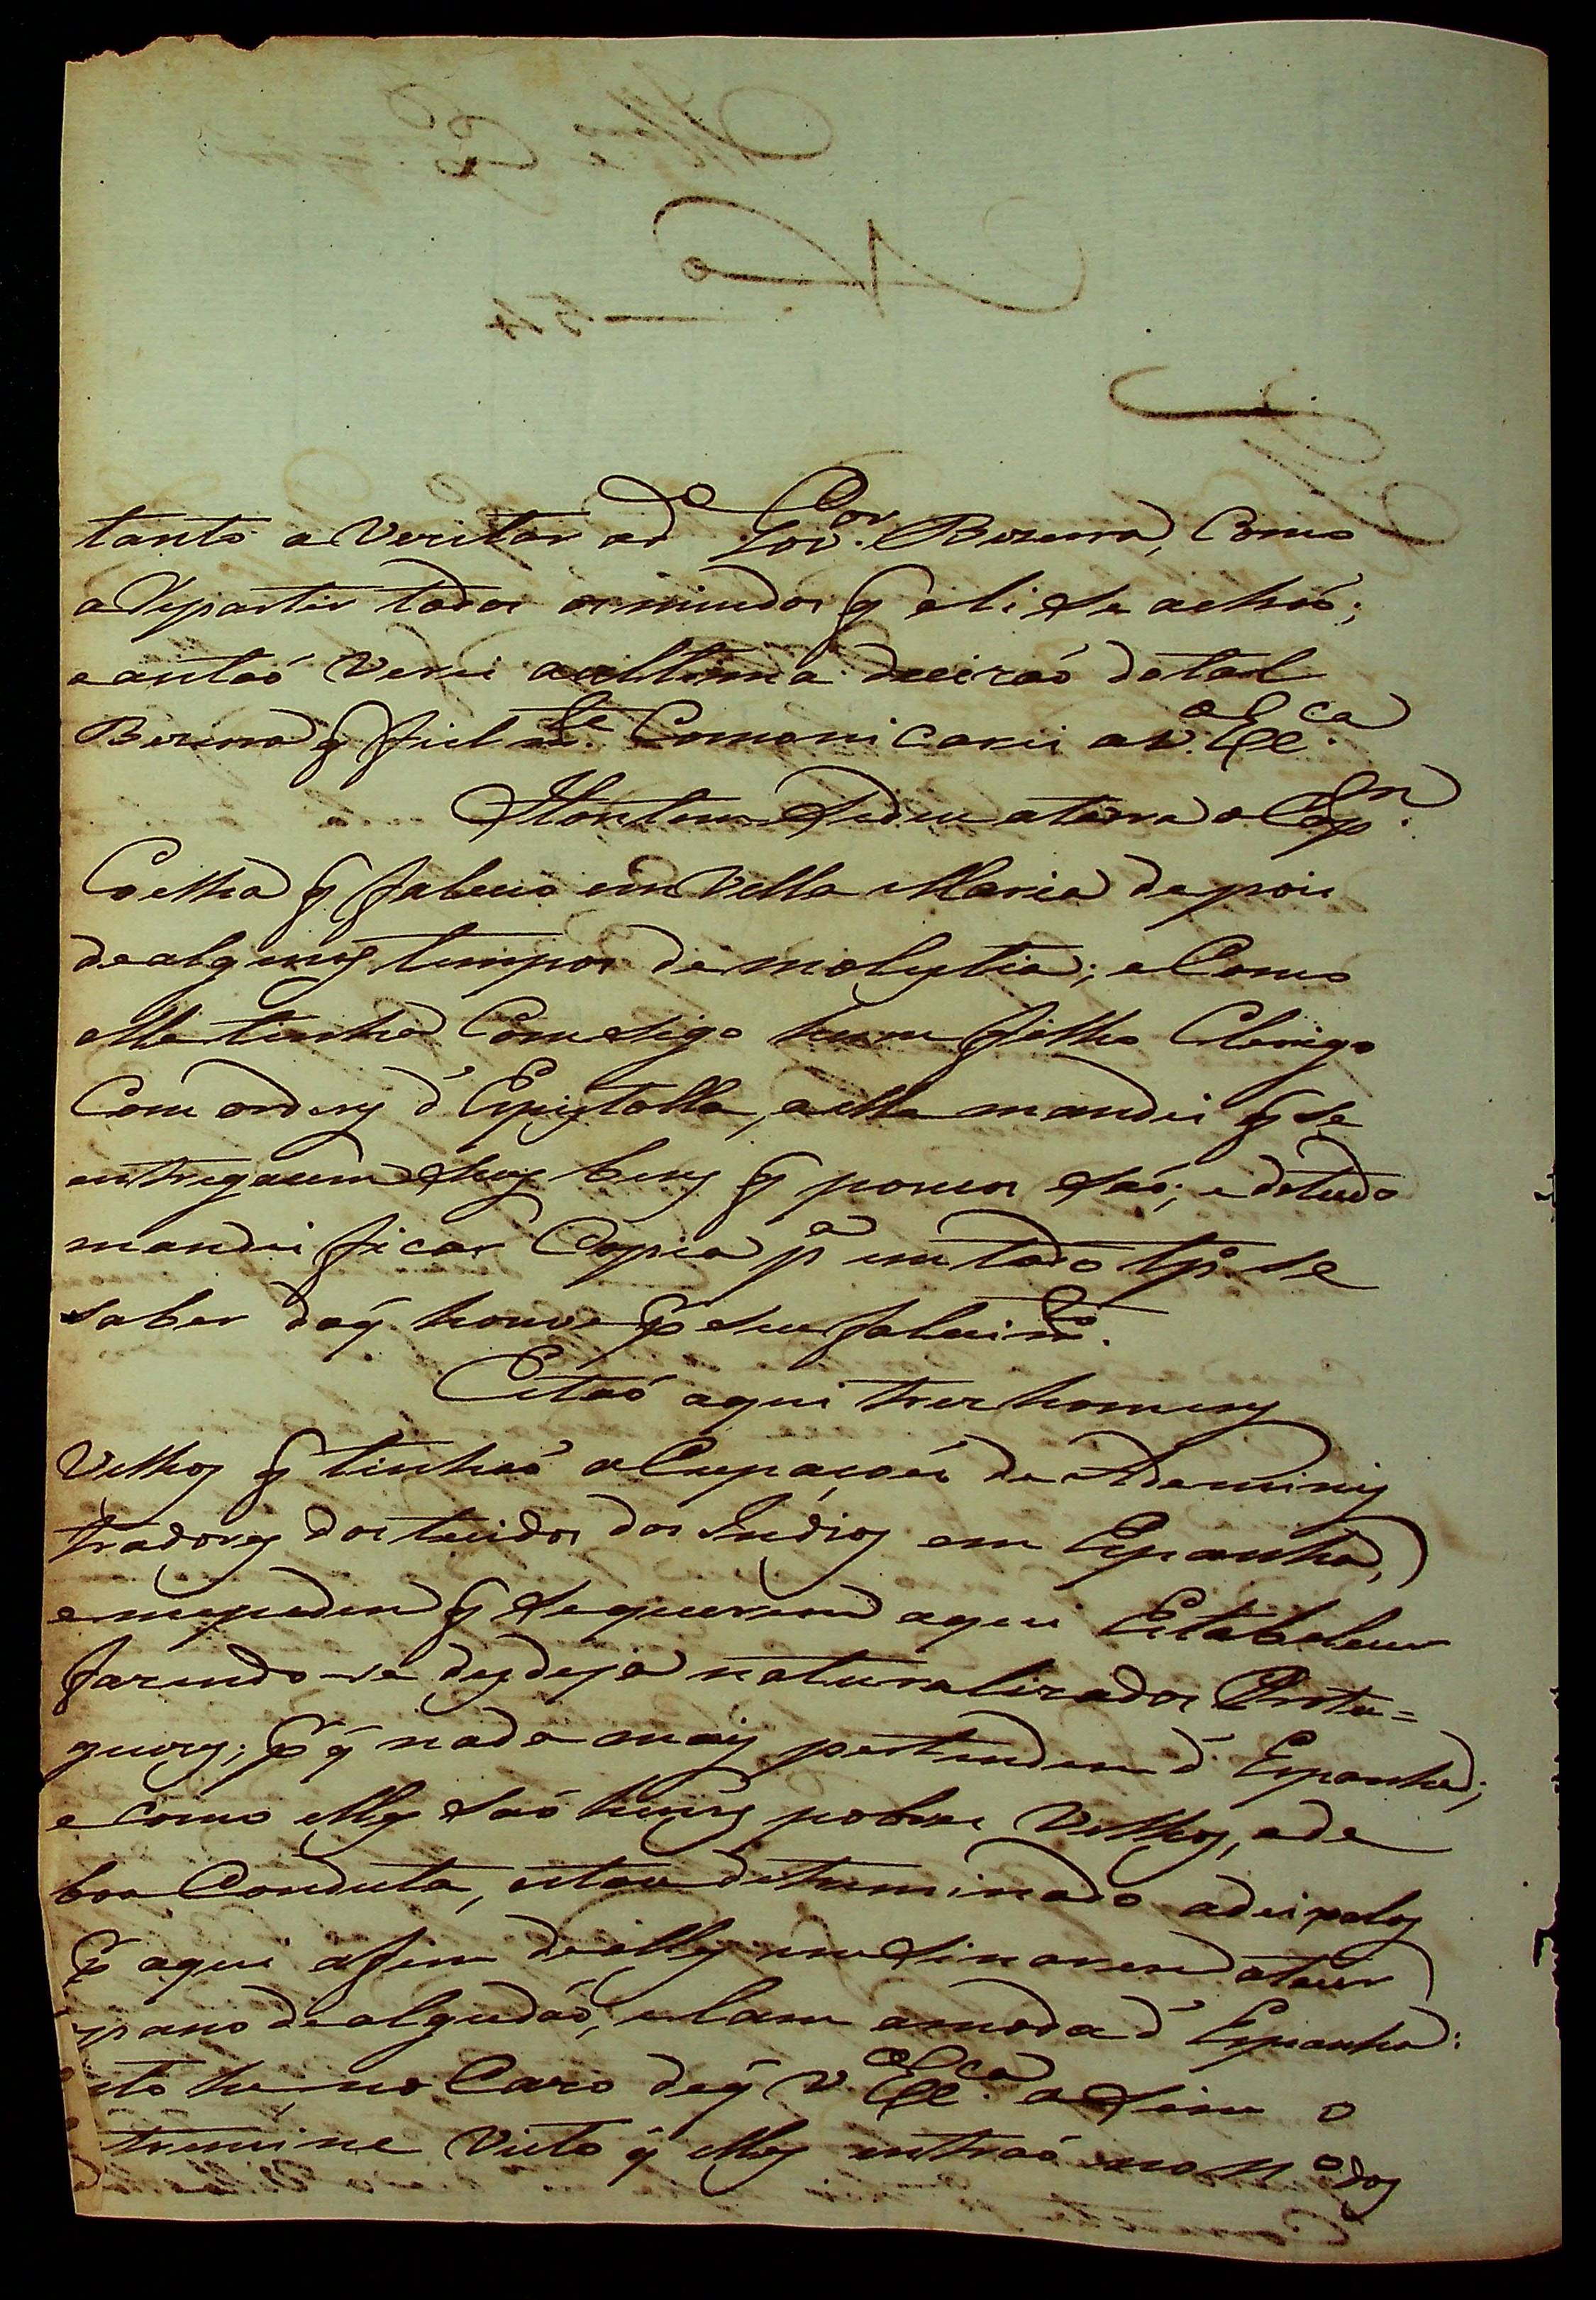 tanto a Veritar ao d.o Gov.or Bezerra, Como
a Repartir todos os miudos q̃ ali se achaõ;
e antaõ verei a ultima decizaõ do tal
Bezerra q̃ fielm.te Comonicarei a V. Ex.ca
Hontem Sedeu aterra o Cap.m
Coelho q̃ faleceo em Villa Maria depois
de alguns tempos de molestia; e Como
elle tinha Comsigo hum filho Clerigo
Com ordens d' Epistolla, a elle mandei q̃ se
entregacem seus bens q̃ poucos saõ; e de tudo
mandei ficar Copia p.a em todo tp.o se
saber do q̃ houve p̃ seu falecim.to
Estaõ aqui tres homens
Velhos q̃ tinhaõ a Ocupaçaõ deAdeminis
tradores dos tecidos dos Indios em Espanha,
e me pedem q̃ se querem aqui Estabelecer
fazendo-se desde ja naturalizados Portu=
guezes; p̃ q̃ nada mais pertendem d' Espanha;
e como elles saõ huñs pobres Velhos, e de
boa Conduta, estou detreminado a deixalos
p̃ aqui afim de elles ensinarem a tecer
pano de algudaõ, e lam a moda d' Espanha:
isto he, no Cazo de q̃ V. Ex.ca asim o
tremine Visto q̃ elles entraõ no n.o dos